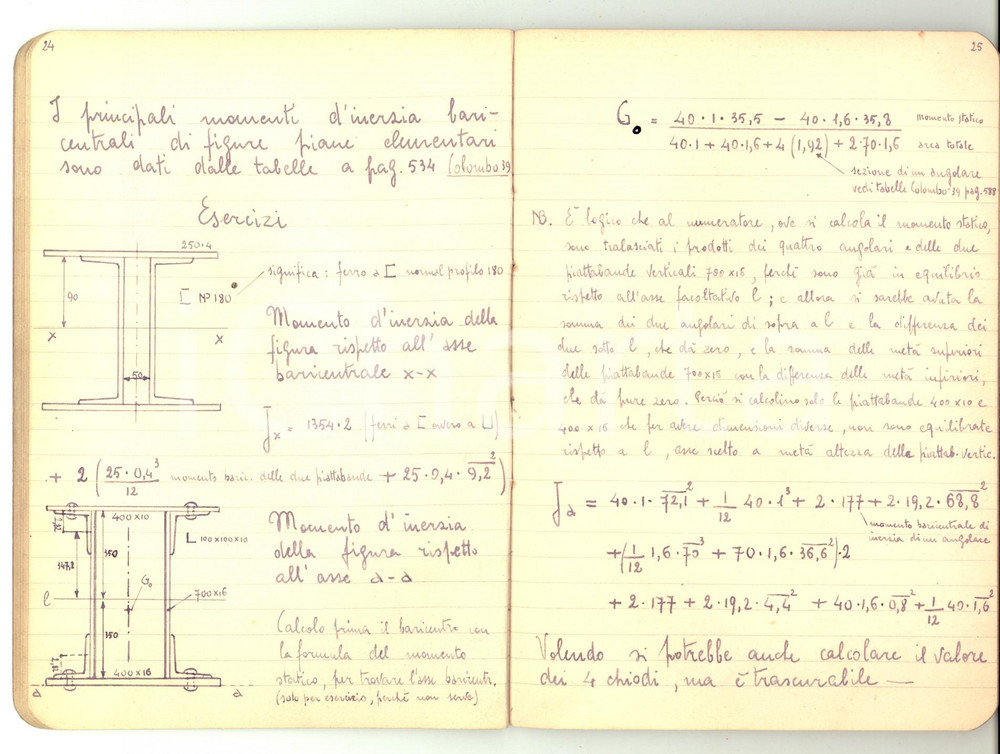 24
I principali momenti d'inerzia bari-
centrali di figure piane elementari
sono dati dalle tabelle a pag. 534 Colombo 39
Esercizi
250·4
significa: ferro a [ normal profilo 180
[ N° 180
90
x x
50
Momento d'inerzia della
figura rispetto all'asse
baricentrale x-x
Jx = 1354·2 (ferri a [ ovvero a U)
+ 2 (25·0,4³/12 momento baric. delle due piattabande + 25·0,4·9,2²)
400x10
L 100x100x10
350
147,8
G₀
l
700x16
350
400x16
a a
Momento d'inerzia
della figura rispetto
all'asse a-a
Calcolo prima il baricentro con
la formula del momento
statico, per trovare l'asse baricentr.
(solo per esercizio, perché non serve)
25
G₀ = 40·1·35,5 − 40·1,6·35,8 momento statico
40·1 + 40·1,6 + 4(1,92) + 2·70·1,6 area totale
sezione di un angolare
vedi tabelle Colombo 39 pag. 588
NB. È logico che al numeratore, ove si calcola il momento statico,
sono tralasciati i prodotti dei quattro angolari e delle due
piattabande verticali 700x16, perché sono già in equilibrio
rispetto all'asse facoltativo l; e allora si sarebbe avuta la
somma dei due angolari di sopra a l e la differenza dei
due sotto l, che dà zero, e la somma delle metà superiori
delle piattabande 700x15 con la differenza delle metà inferiori,
che dà pure zero. Perciò si calcolino solo le piattabande 400x10 e
400x16 che per avere dimensioni diverse, non sono equilibrate
rispetto a l, asse scelto a metà altezza della piattab. vertic.
Ja = 40·1·72,1² + 1/12 40·1³ + 2·177 + 2·19,2·68,8²
momento baricentrale di
inerzia di un angolare
+(1/12 1,6·70³ + 70·1,6·36,6²)·2
+ 2·177 + 2·19,2·4,4² + 40·1,6·0,8² + 1/12 40·1,6³
Volendo si potrebbe anche calcolare il valore
dei 4 chiodi, ma è trascurabile —